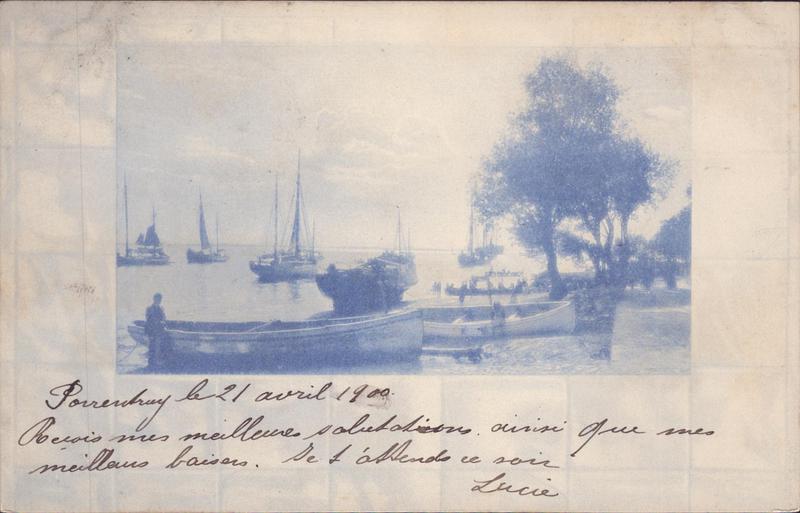 Porrentruy le 21 avril 1900.
Recois mes meilleures salutations. ainsi que mes
meilleurs baisers. Je t'attends ce soir
Lucie